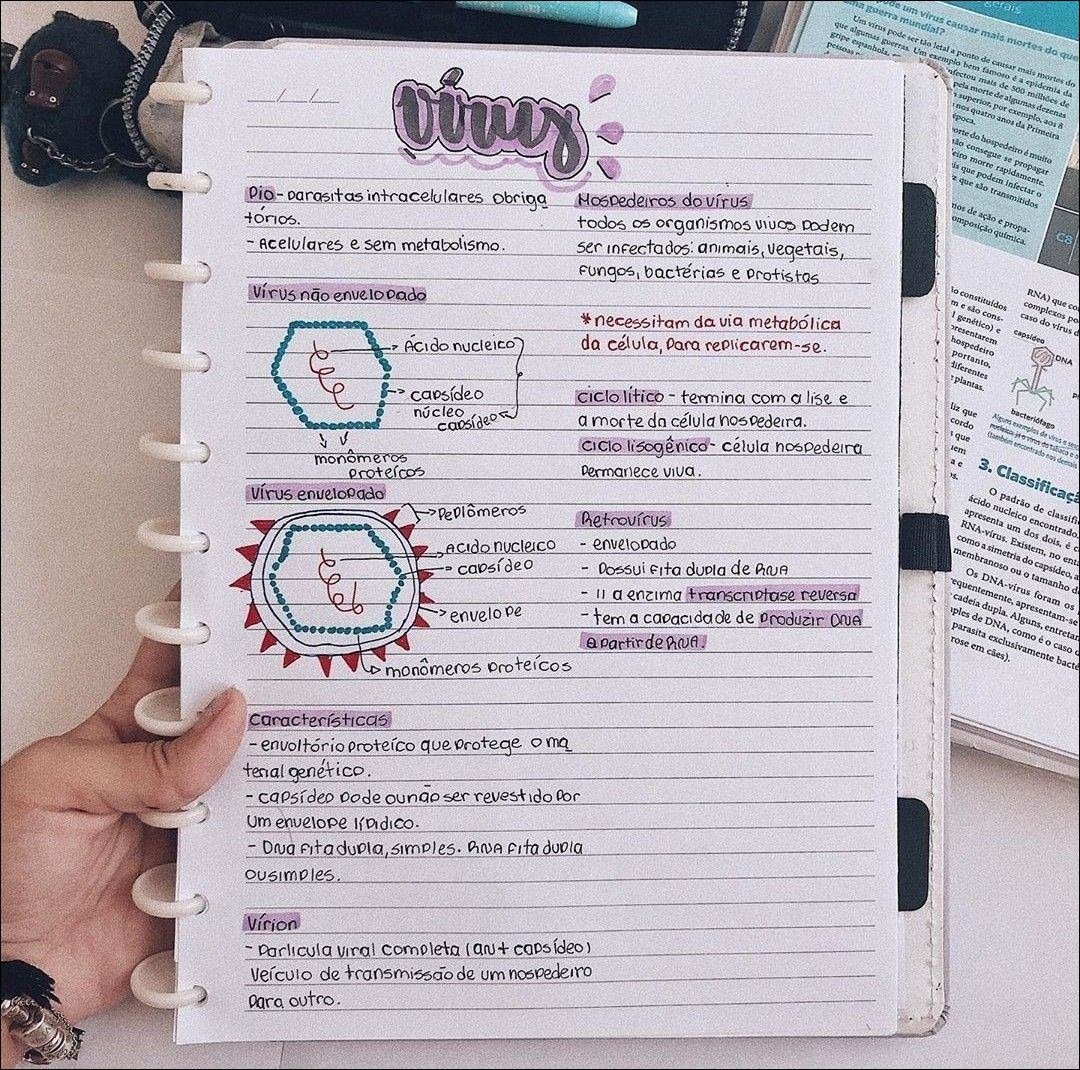 vírus
PIO - parasitas intracelulares obriga
tórios.
- Acelulares e sem metabolismo.
Vírus não envelopado
Ácido nucleico
capsídeo
núcleo
capsídeo
monômeros
proteícos
Vírus envelopado
Peplômeros
Acido nucleico
capsídeo
envelope
monômeros proteícos
Características
- envoltório proteíco que protege o ma
terial genético.
- capsídeo pode ou não ser revestido por
um envelope lípidico.
- DNA fita dupla, simples. RNA fita dupla
ou simples.
Vírion
- Partícula viral completa (an + capsídeo)
Veículo de transmissão de um hospedeiro
para outro.
Hospedeiros do vírus
todos os organismos vivos podem
ser infectados: animais, vegetais,
fungos, bactérias e protistas
*necessitam da via metabólica
da célula, para replicarem-se.
ciclo lítico - termina com a lise e
a morte da célula hospedeira.
ciclo lisogênico - célula hospedeira
permanece viva.
Retrovírus
- envelopado
- Possui fita dupla de RNA
- 11 a enzima transcriptase reversa
- tem a capacidade de produzir DNA
a partir de RNA.
gerais
de um vírus causar mais mortes do que
uma guerra mundial?
Um vírus pode ser tão letal a ponto de causar mais mortes do
que algumas guerras. Um exemplo bem famoso é a epidemia da
gripe espanhola,
infectou mais de 500 milhões de
pela morte de algumas dezenas
superior, por exemplo, aos 8
nos quatro anos da Primeira
época.
morte do hospedeiro é muito
não consegue se propagar
morre rapidamente.
que podem infectar o
que são transmitidos
de ação e propa-
composição química.
C8
constituídos
m e são cons-
genético) e
apresentarem
hospedeiro
portanto,
diferentes
e plantas.
RNA) que co
complexos po
caso do vírus d
capsídeo
DNA
bacteriófago
Alguns exemplos de vírus e
3. Classificaçã
O padrão de classifi
ácido nucleico encontrado.
apresenta um dos dois, é c
RNA-vírus. Existem, no enta
como a simetria do capsídeo, a
membranoso ou o tamanho da
Os DNA-vírus foram os
equentemente, apresentam-se
cadeia dupla. Alguns, entretan
ples de DNA, como é o caso d
parasita exclusivamente bacté
rose em cães).